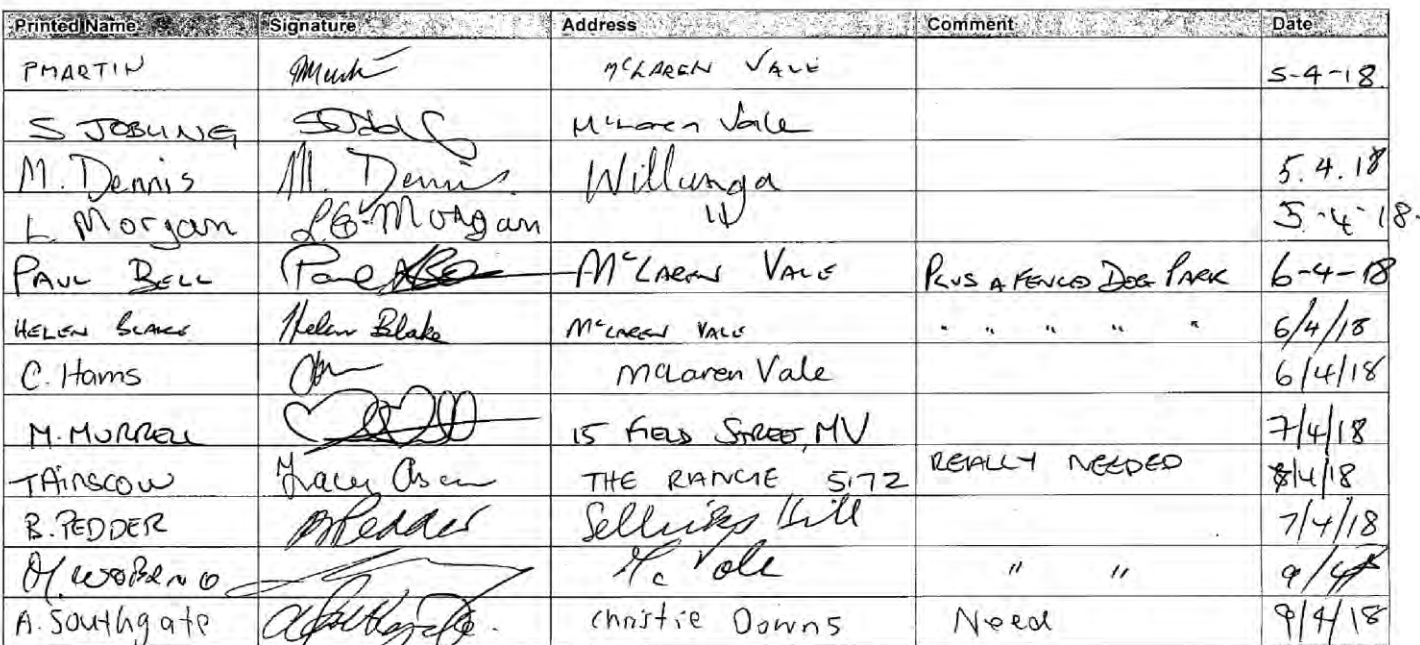 Printed Name Signature Address Comment Date
P MARTIN McLAREN VALE 5-4-18.
S JOBLING McLaren Vale
M. Dennis M. Dennis. Willunga 5.4.18
L. Morgan L.G. Morgan " 5-4-18.
PAUL BELL Paul Bell McLAREN VALE PLUS A FENCED DOG PARK 6-4-18
HELEN BLAKE Helen Blake McLAREN VALE " " " " " 6/4/18
C. Harris McLaren Vale 6/4/18
M. MURRELL 15 FIELD STREET, MV 7/4/18
T AINSCOW THE RANGE 5172 REALLY NEEDED 8/4/18
B. PEDDER B Pedder Sellicks Hill 7/4/18
Mc Vale " " 9/4
A. Southgate Christie Downs Need 9/4/18